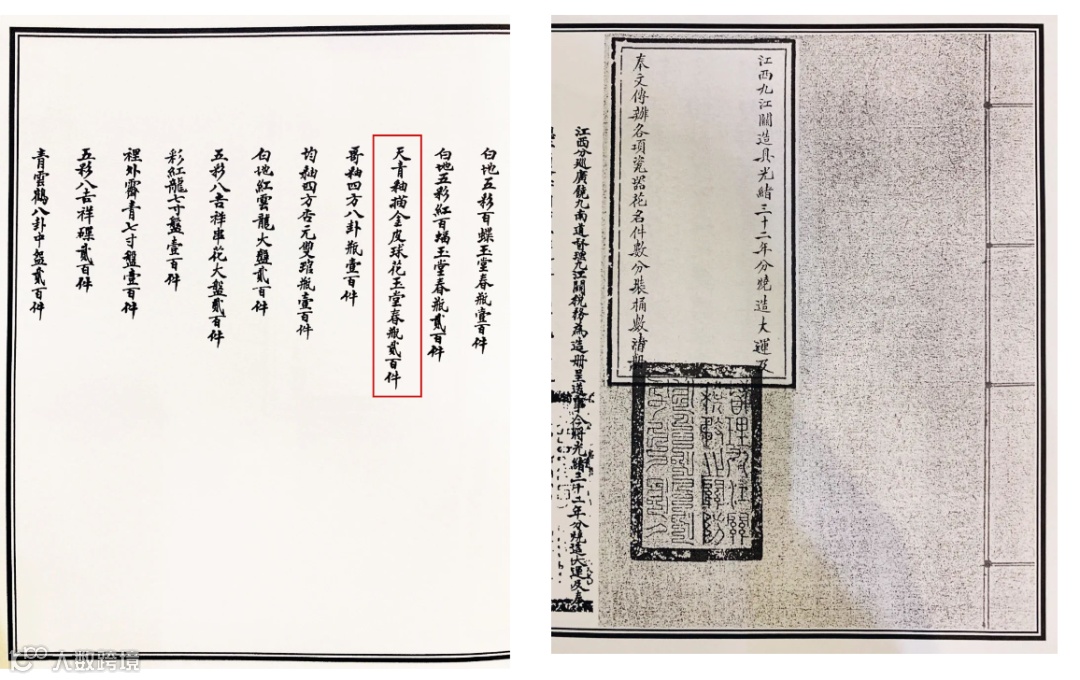 白地五彩百蝶玉堂春瓶壹百件
白地五彩紅百蝠玉堂春瓶貳百件
天青釉描金皮球花玉堂春瓶貳百件
哥釉四方八卦瓶壹百件
均釉四方杏元雙琯瓶壹百件
白地紅雲龍大盤貳百件
五彩八吉祥串花大盤貳百件
彩紅龍七寸盤壹百件
裡外霽青七寸盤壹百件
五彩八吉祥碟貳百件
青雲鶴八卦中盌貳百件
江西九江關造具光緒三十二年分燒造大運及
奉文傳辦各項瓷器花名件數分裝桶數清冊
江西分巡廣饒九南道督理九江關稅務為造冊呈送事今將光緒三十二年分燒造大運及奉
大数跨境